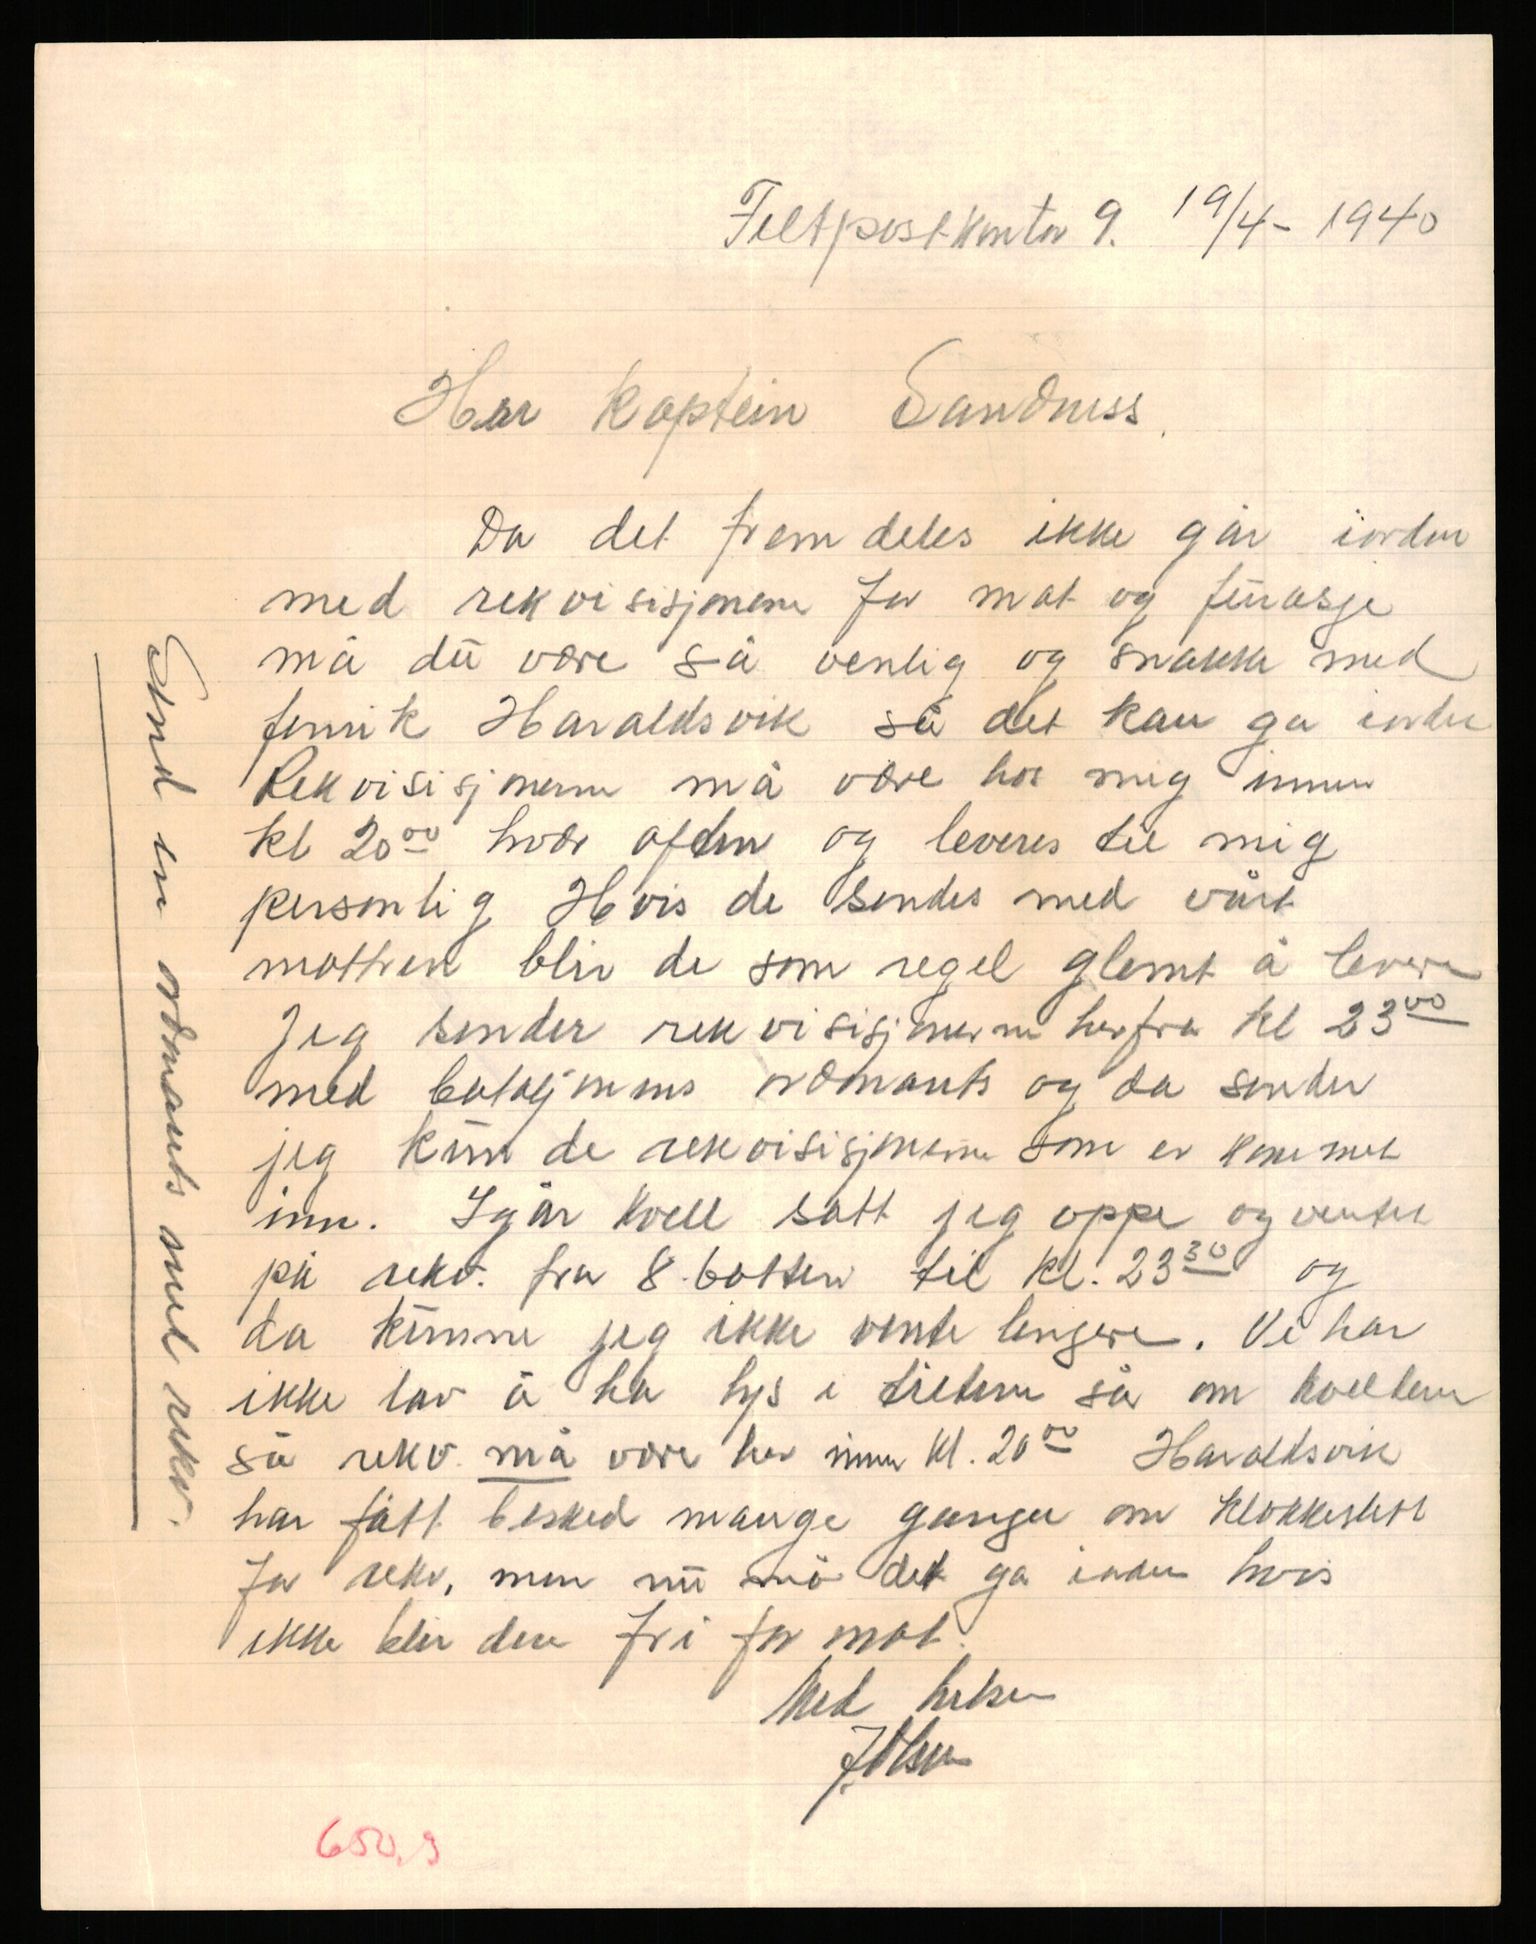 Feltpostkontor 9. 19/4 - 1940
Herr Kaptein Sandness.
Da det fremdeles ikke går iorden
med rekvisisjonene for mat og furasje
må du være så venlig og snakke med
fenrik Haraldsvik så det kan ga iorden
Rekvisisjonene må være hos mig innen
kl 20⁰⁰ hver aften og leveres til mig
personlig Hvis de sendes med vårt
mattren blir de som regel glemt å levere
Jeg sender rekvisisjonerne herfra kl 23⁰⁰
med batajonens ordonants og da sender
jeg kun de rekvisisjonene som er kommet
inn. Igår kvell satt jeg oppe og ventet
på rekv. fra 8 batteri til kl. 23³⁰ og
da kunne jeg ikke vente lengere. Vi har
ikke lov å ha lys i teltene så om kveldene
så rekv. må være her innen kl. 20⁰⁰ Haraldsvik
har fått besked mange ganger om klokkeslett
for rekv, men nu må det ga iorden hvis
ikke blir dere fri for mat.
Med hilsen
J. Olsen
Send en ordonants med rekv.
650,9